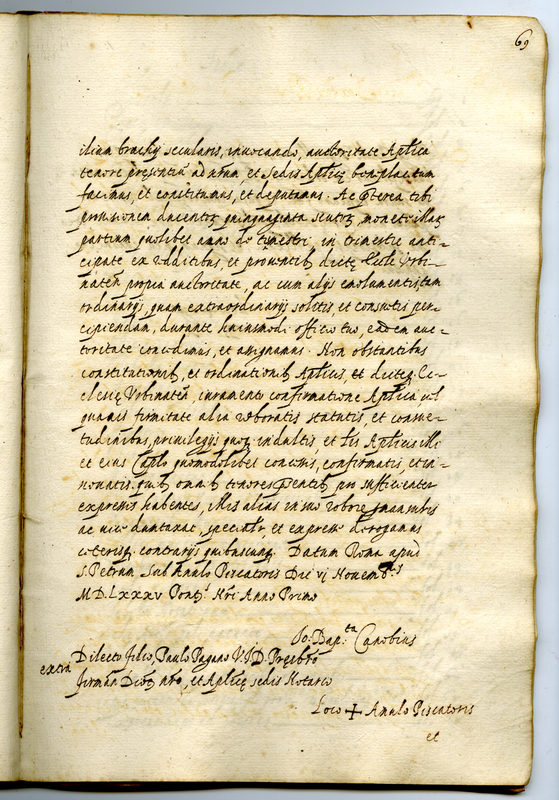 69
ilium brachij secularis, invocando, auctoritate Aplica
tenore presentiu ad nrum, et sedis Aplicę beneplacitum
facimus, et constituimus, et deputamus. Ac pterea tibi
provisionem ducentoȝ quinquaginta scutoȝ monetę illaȝ
partium quolibet anno de trimestri, in trimestre anti-
cipate ex redditibus, et proventib dictę Ecclie Urbi-
naten propria auctoritate, ac cum alijs emolumentis, tam
ordinarijs, quam extraordinarijs solitis, et consuetis per-
cipiendam, durante huiusmodi officio tuo, eadem auc-
toritate concedimus, et assignamus. Non obstantibus
constitutionib, et ordinationib Aplicis, et dicteȝ Ec-
clesię Urbinaten, iuramento confirmatione Aplica vel
quavis firmitate alia roboratis statutis, et consue-
tudinibus, privilegijs quoȝ indultis, et lris Aplicis illi
et eius Caplo quomodolibet concessis, confirmatis, et in-
novatis. quib omnib tenores pntib pro sufficienter
expressis habentes, illis alias in suo robore pmansuris
hac vice duntaxat, specialr, et expresse derogamus
ceterisq contrarijs quibuscunq. Datum Rome apud
S. Petrum Sub Anulo Piscatoris Die vj Novemb.s
M.D.Lxxxv Pont.s Nri Anno Primo
Jo: Bap.ta Canobius
extra Dilecto filio, Paulo Pagano V.J.D. Presbro
firman Dioc nro, et Aplicę sedis Notario
Loco + Anulo Piscatoris
et